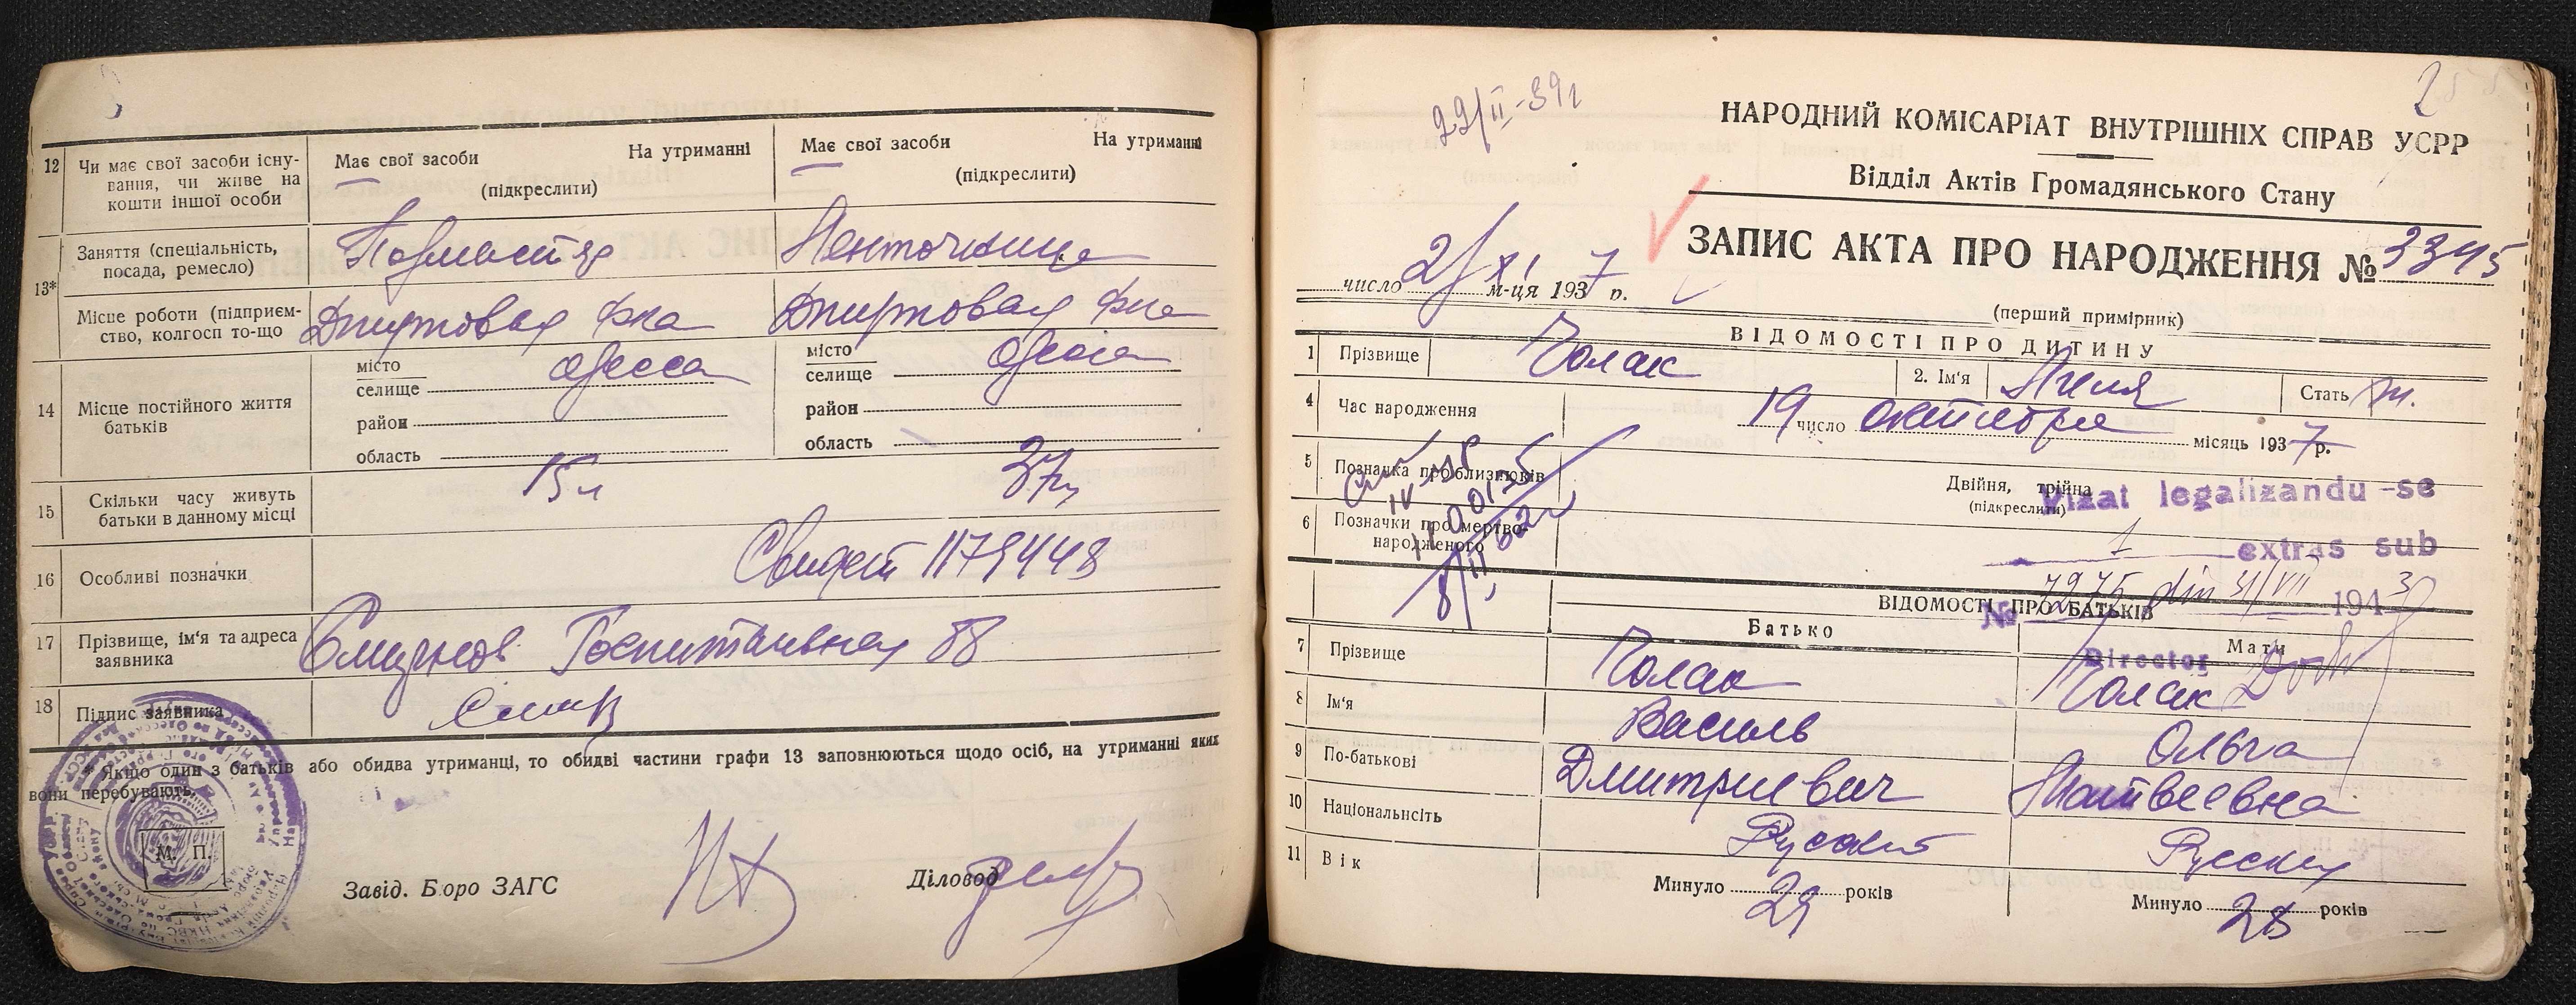 12 Чи має свої засоби існу-
вання, чи живе на
кошти іншої особи
Має свої засоби На утриманні
(підкреслити)
Має свої засоби На утриманні
(підкреслити)
13* Заняття (спеціальність,
посада, ремесло)
Подмастер
Ленточница
Місце роботи (підприєм-
ство, колгосп то-що
Джутовая ф-ка
Джутовая ф-ка
14 Місце постійного життя
батьків
місто
селище Одесса
район
область
місто
селище Одесса
район
область
15 Скільки часу живуть
батьки в данному місці
15 л
16 Особливі позначки
Свидет 1179448
17 Прізвище, ім'я та адреса
заявника
Смирнов Госпитальная 88
18 Підпис заявника
* Якщо один з батьків або обидва утриманці, то обидві частини графи 13 заповнюються щодо осіб, на утриманні яких
вони перебувають.
М. П.
Завід. Бюро ЗАГС
Діловод
22/II-39г
2
НАРОДНИЙ КОМІСАРІАТ ВНУТРІШНІХ СПРАВ УСРР
Відділ Актів Громадянського Стану
ЗАПИС АКТА ПРО НАРОДЖЕННЯ № 3345
число 21 XI м-ця 1937 р.
(перший примірник)
ВІДОМОСТІ ПРО ДИТИНУ
1 Прізвище Чолак
2. Ім'я Неля
Стать ж.
4 Час народження
19 число октября місяць 1937 р.
5 Позначка про близнюків
Двійня, трійна
(підкреслити)
Vizat legalizandu-se
6 Позначки про мертво-
народженого
1 extras sub
№ 7975 din 31/VII 1943
ВІДОМОСТІ ПРО БАТЬКІВ
Батько
Мати
Director
7 Прізвище
Чолак
Чолак
8 Ім'я
Василь
Ольга
9 По-батькові
Дмитриевич
Матвеевна
10 Національнсіть
Русский
Русская
11 Вік
Минуло 29 років
Минуло 28 років